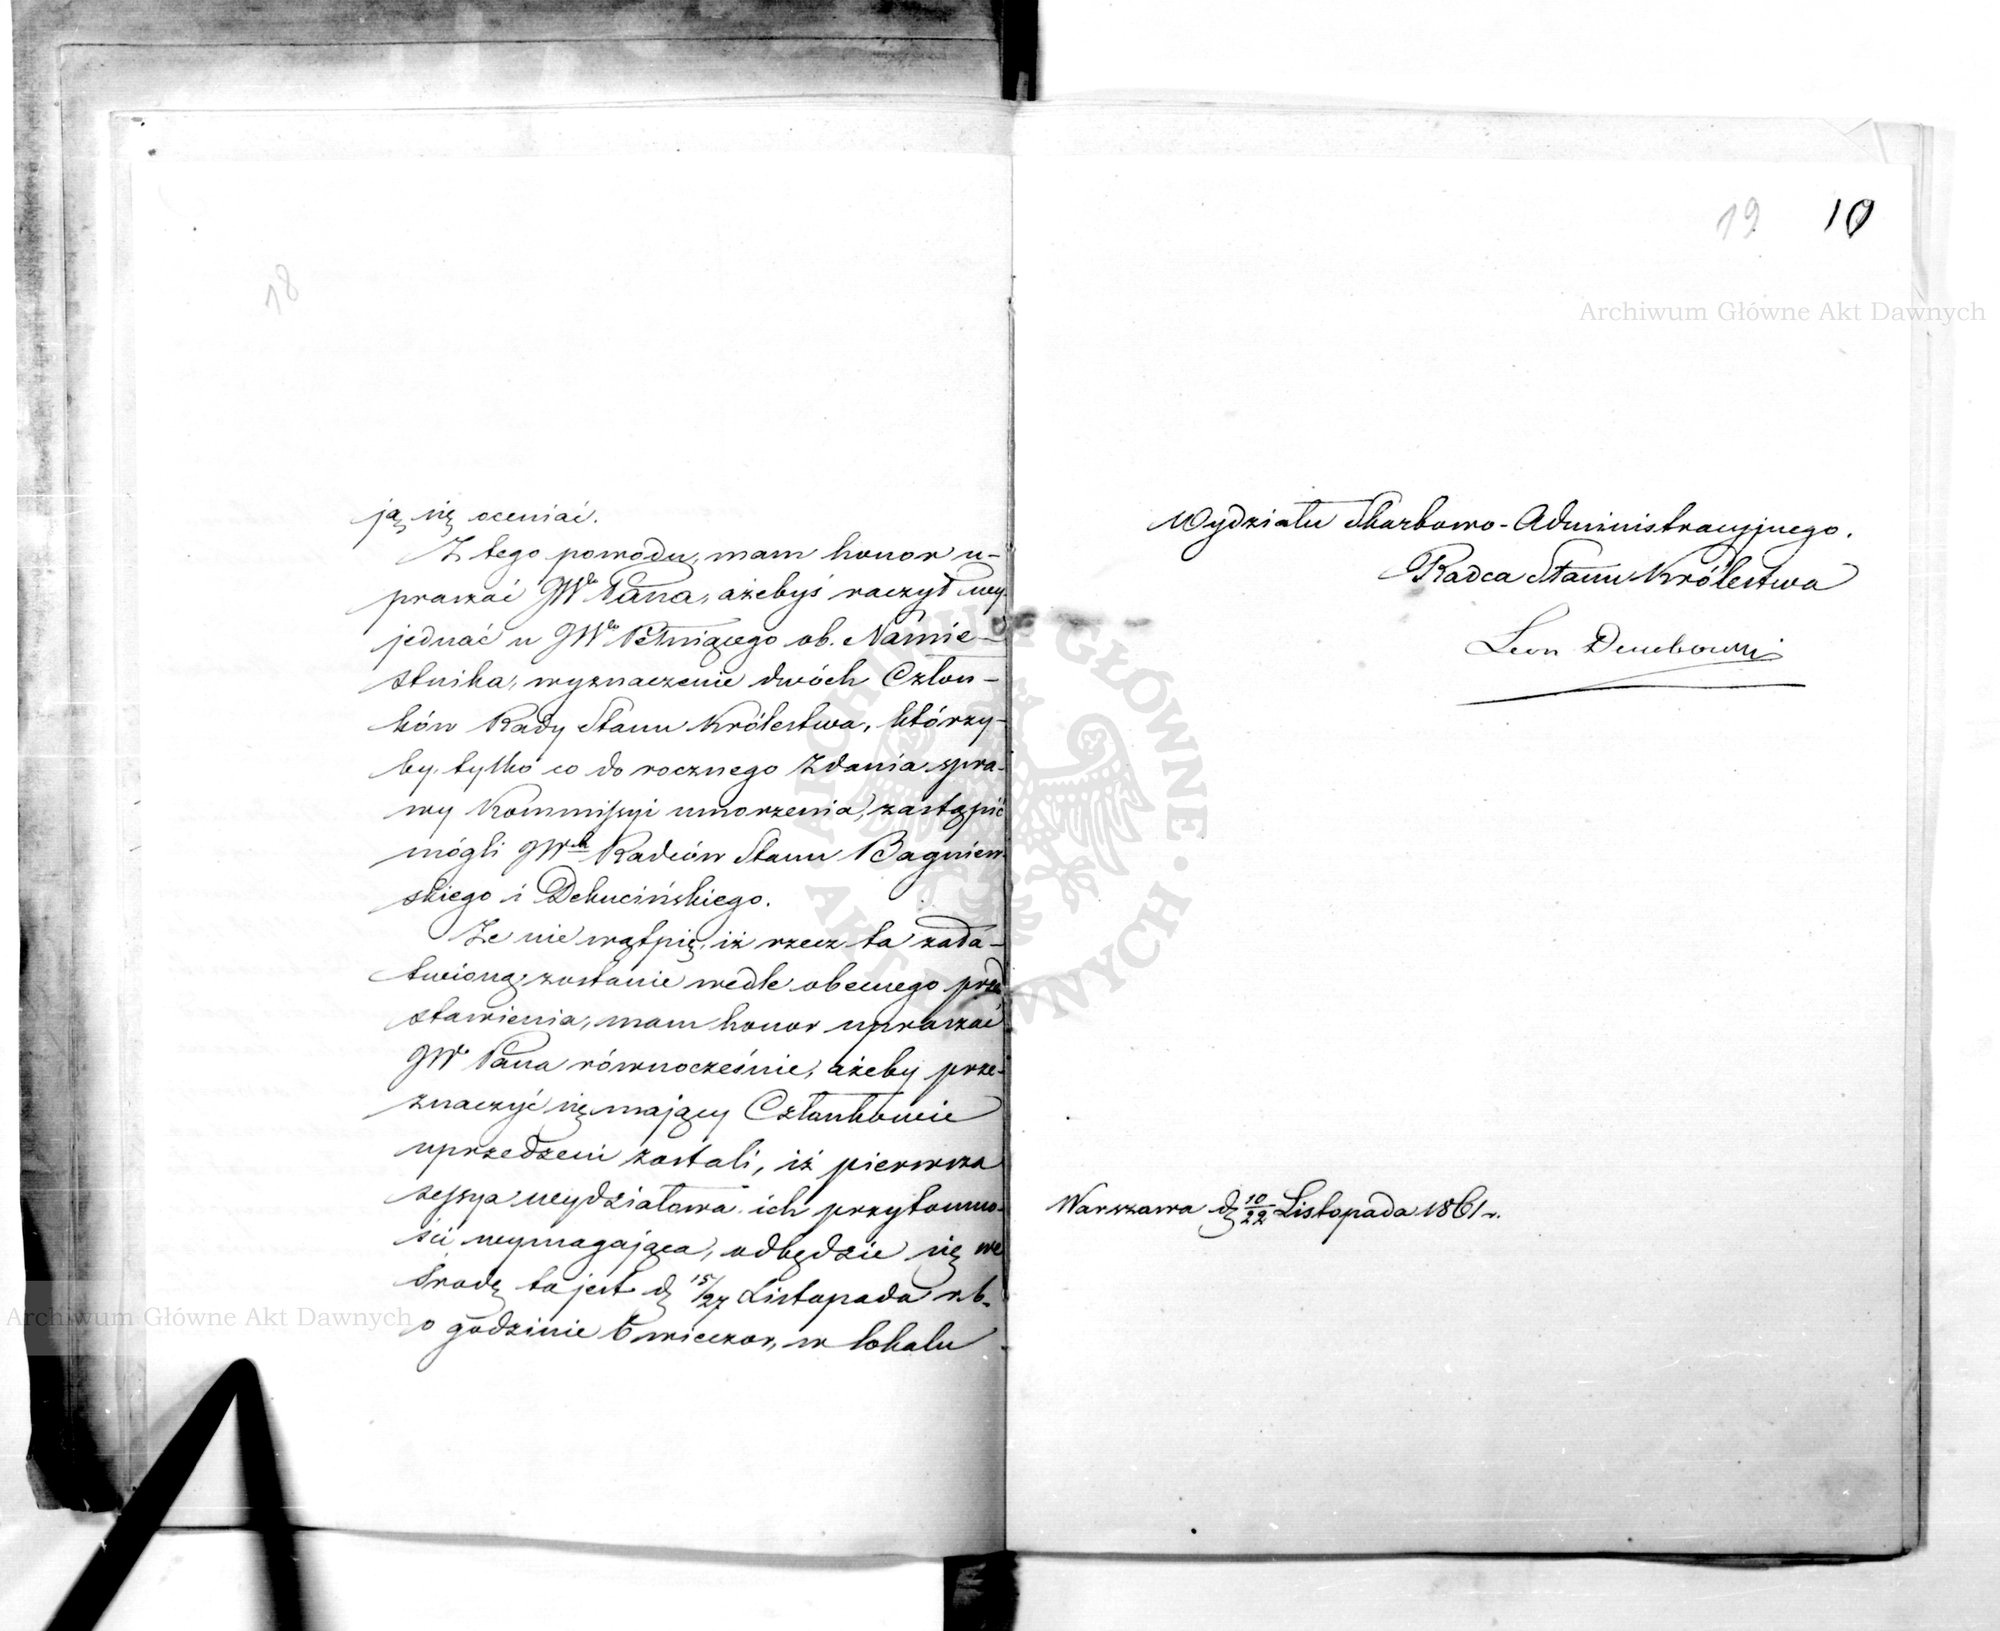 18
ją się oceniać.
Z tego powodu, mam honor u-
praszać JWo Pana, ażebyś raczył wy
jednać u JWo Pełniącego ob. Namie-
stnika, wyznaczenie dwóch Człon-
ków Rady Stanu Królestwa, którzy-
by, tylko co do rocznego Zdania spra-
wy Kommissyi umorzenia, zastąpić
mógli JWch Radców Stanu Bagniew-
skiego i Dekucińskiego.
Że nie wątpię, iż rzecz ta zała-
twioną zostanie wedle obecnego prze
stawienia, mam honor upraszać
JWo Pana równocześnie, ażeby prze-
znaczyć się mający Członkowie
uprzedzeni zostali, iż pierwsza
sessya wydziałowa ich przytomno-
ści wymagająca, odbędzie się we
Środę to jest d. 15/27 Listopada rb.
o godzinie 6 wieczor, w lokalu
19 10
Archiwum Główne Akt Dawnych
Wydziału Skarbowo-Administracyjnego.
Radca Stanu Królestwa
Leon Dembowski
Warszawa d. 10/22 Listopada 1861 r.
Archiwum Główne Akt Dawnych
ARCHIWUM GŁÓWNE AKT DAWNYCH